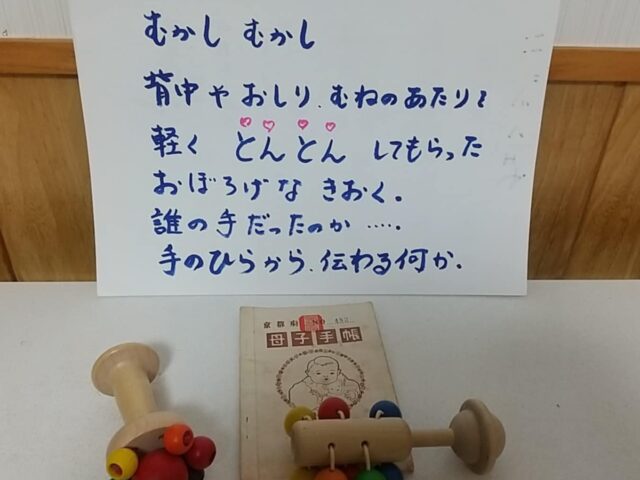 むかし むかし
背中や おしり、むねのあたりを
軽く とんとん してもらった
おぼろげな きおく。
誰の手だったのか ‥‥.
手のひらから、伝わる何か.
母子手帳